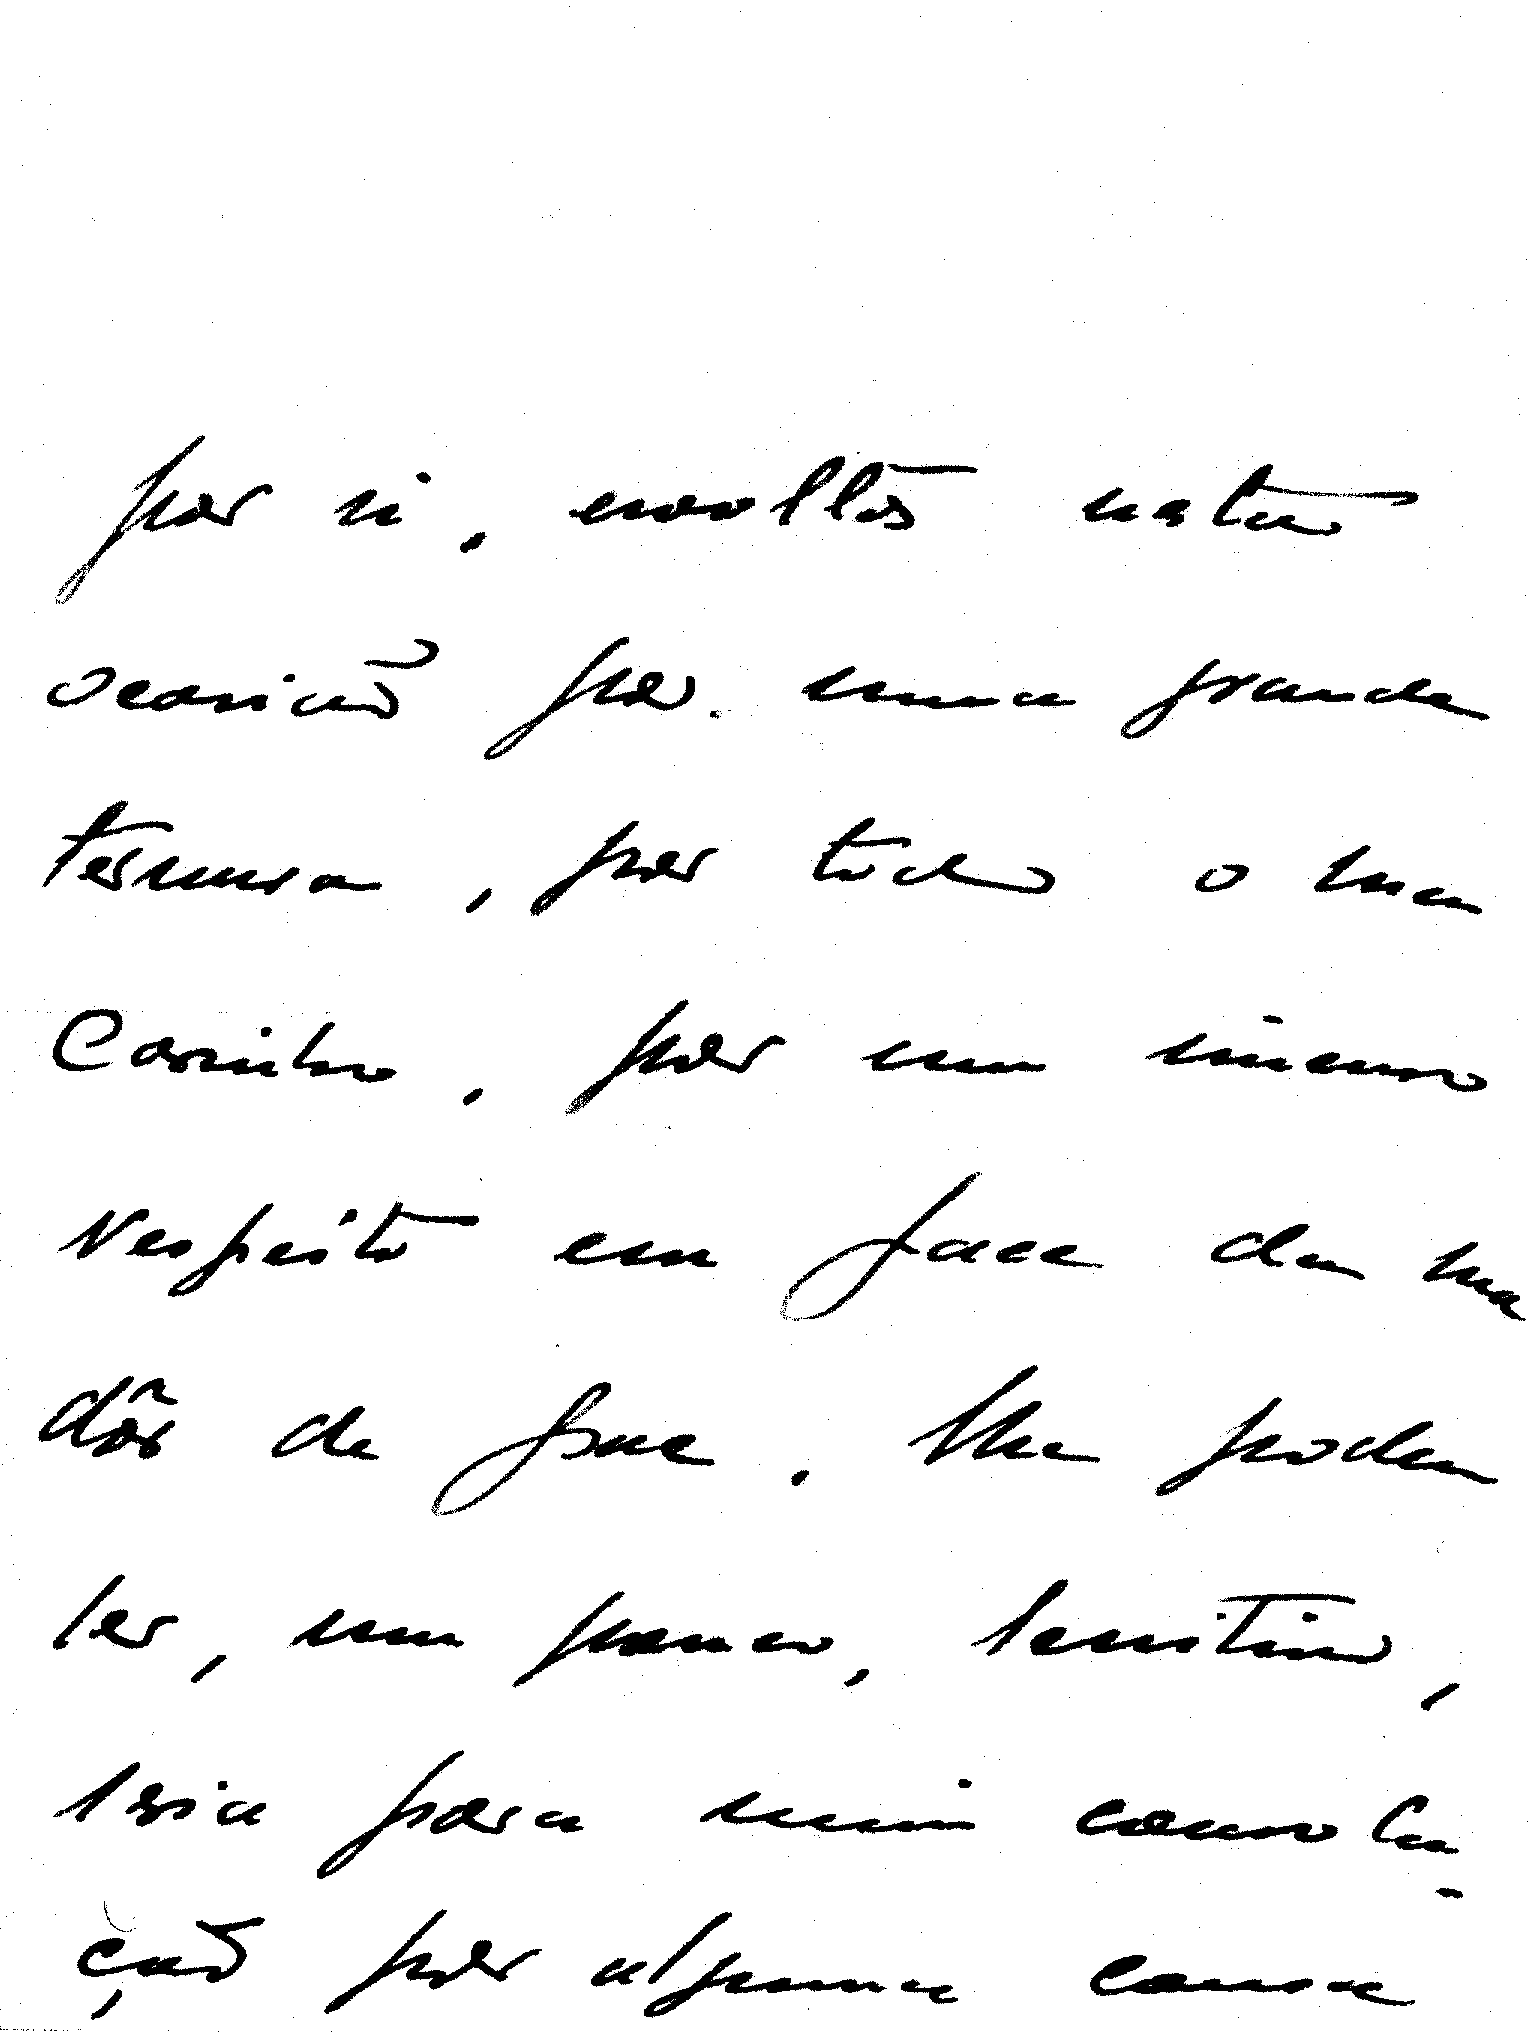 por si, envoltos nesta
ocasião por uma grande
ternura, por todo o meu
Carinho, por um imenso
respeito em face da sua
dôr de que. Me poder
ler, um pouco, lenitivo,
seria para mim consola-
ção por alguma coisa